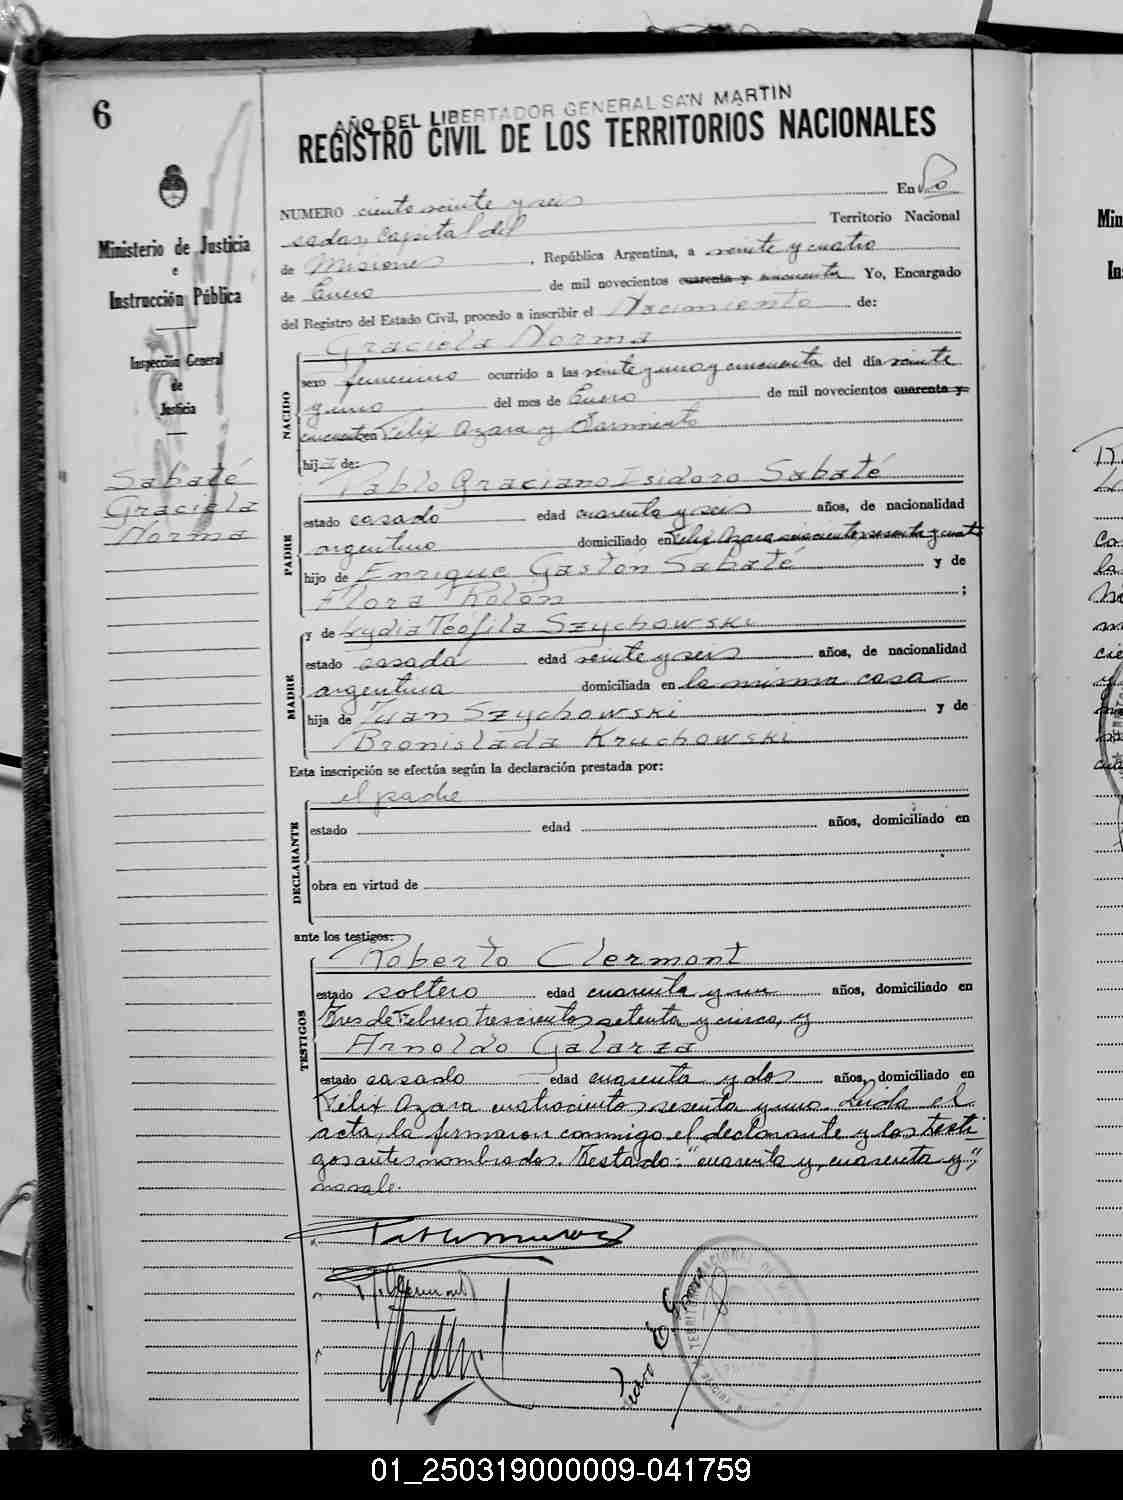 6
AÑO DEL LIBERTADOR GENERAL SAN MARTIN
REGISTRO CIVIL DE LOS TERRITORIOS NACIONALES
Ministerio de Justicia
e
Instrucción Pública
Inspección General
de
Justicia
Sabaté
Graciela
Norma
NUMERO ciento veinte y seis En Po
sadas, Capital del Territorio Nacional
de Misiones, República Argentina, a veinte y cuatro
de Enero de mil novecientos cuarenta y cincuenta Yo, Encargado
del Registro del Estado Civil, procedo a inscribir el Nacimiento de:
NACIDO
Graciela Norma
sexo femenino ocurrido a las veinte y una y cincuenta del día veinte
y uno del mes de Enero de mil novecientos cuarenta y
cincuenta en Felix Azara y Sarmiento
hija de:
PADRE
Pablo Graciano Isidoro Sabaté
estado casado edad cuarenta y seis años, de nacionalidad
argentino domiciliado en Felix Azara seiscientos sesenta y cuatro
hijo de Enrique Gastón Sabaté y de
Flora Rolón ;
MADRE
y de Lydia Teofila Szychowski
estado casada edad veinte y seis años, de nacionalidad
argentina domiciliada en la misma casa
hija de Juan Szychowski y de
Bronislada Kruchowski
Esta inscripción se efectúa según la declaración prestada por:
DECLARANTE
el padre
estado edad años, domiciliado en
obra en virtud de
ante los testigos:
TESTIGOS
Roberto Clermont
estado soltero edad cuarenta y un años, domiciliado en
Tres de Febrero trescientos setenta y cinco, y
Arnoldo Galarza
estado casado edad cuarenta y dos años, domiciliado en
Felix Azara cuatrocientos sesenta y uno. Leida el
acta, la firmaron conmigo el declarante y los testi-
gos antes nombrados. Testado: "cuarenta y, cuarenta y",
no vale.
01_250319000009-041759